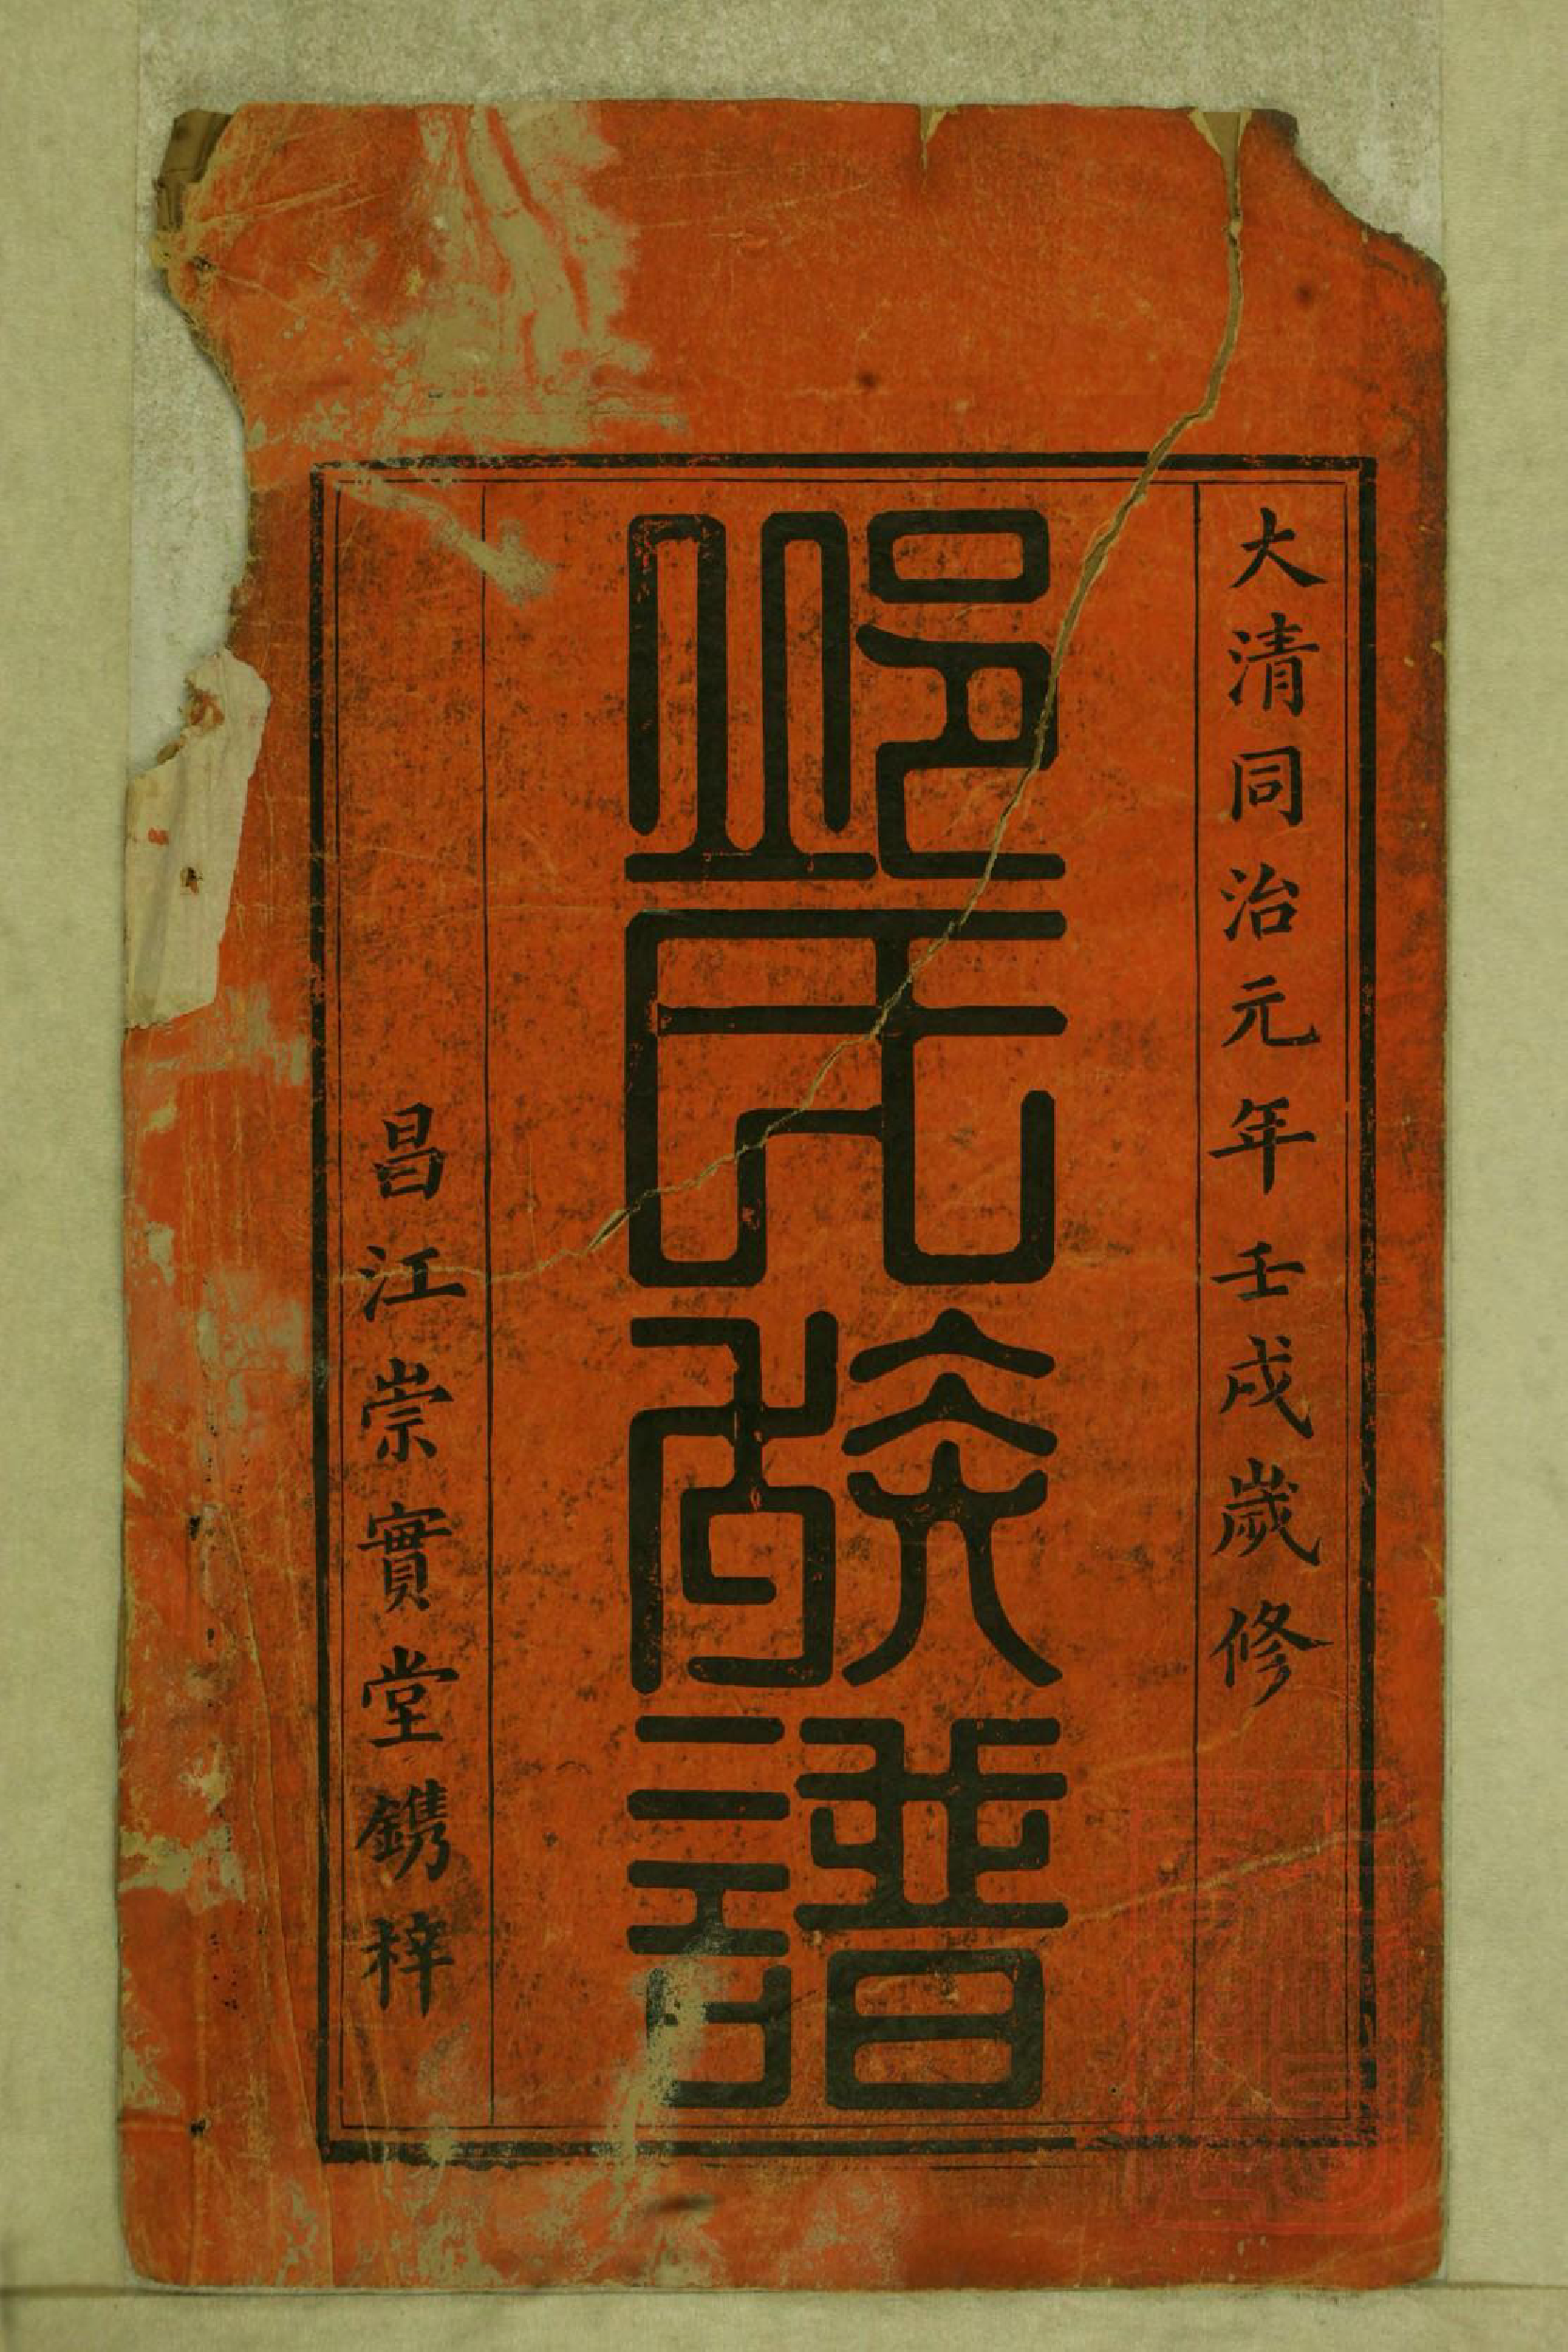 大清同治元年壬戌歲修
邱氏族譜
昌江崇實堂鎸梓